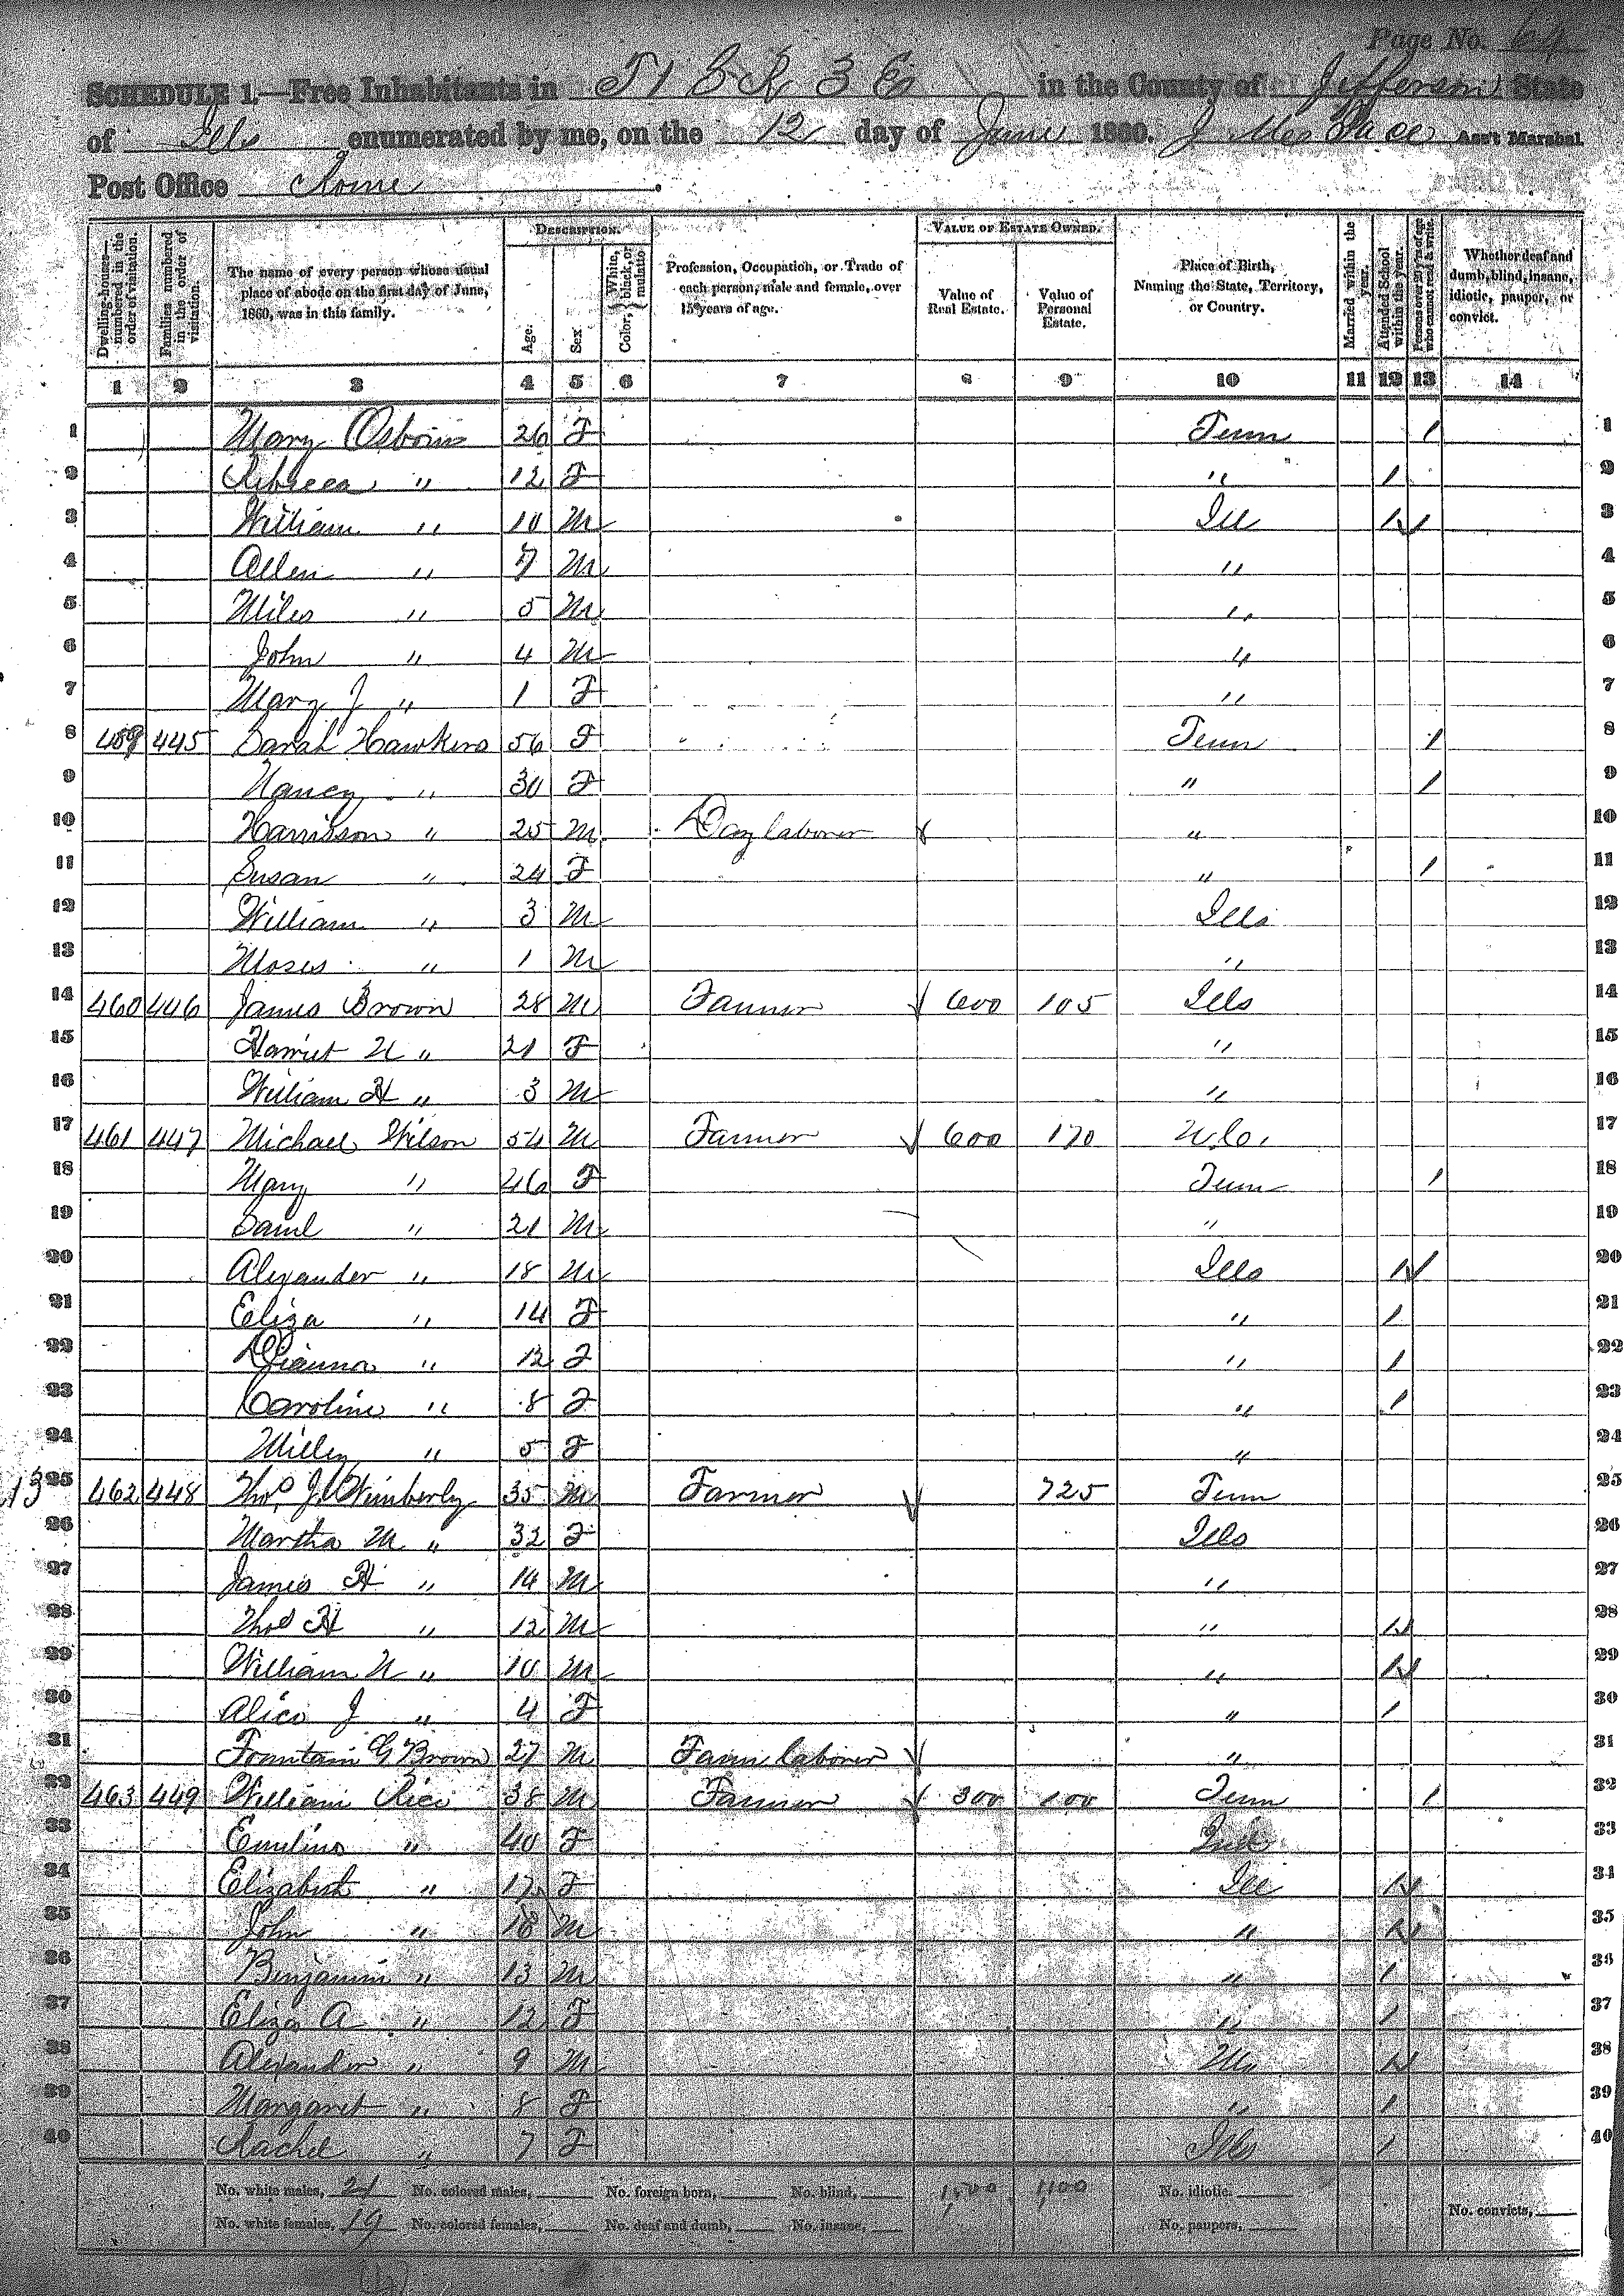 Page No. 64
SCHEDULE 1.—Free Inhabitants in T 1 S R 3 E in the County of Jefferson State
of Ills enumerated by me, on the 12 day of June 1860. Pace Ass't Marshal
Post Office Rome
DESCRIPTION. VALUE OF ESTATE OWNED.
Dwelling-houses—numbered in the order of visitation. Families numbered in the order of visitation. The name of every person whose usual place of abode on the first day of June, 1860, was in this family. Age. Sex Color, White, black, or mulatto Profession, Occupation, or Trade of each person, male and female, over 15 years of age. Value of Real Estate. Value of Personal Estate. Place of Birth, Naming the State, Territory, or Country. Married within the year. Attended School within the year. Persons over 20 y'rs of age who cannot read & write. Whether deaf and dumb, blind, insane, idiotic, pauper, or convict.
1 2 3 4 5 6 7 8 9 10 11 12 13 14
1 Mary Osborn 26 F Tenn / 1
2 Rebecca " 12 F " / 2
3 William " 10 M Ill / / 3
4 Allen " 7 M " 4
5 Miles " 5 M " 5
6 John " 4 M " 6
7 Mary J " 1 F " 7
8 459 445 Sarah Hawkins 56 F Tenn / 8
9 Nancy " 30 F " / 9
10 Harrison " 25 M Day laborer " 10
11 Susan " 24 F " / 11
12 William " 3 M Ills 12
13 Moses " 1 M " 13
14 460 446 James Brown 28 M Farmer 600 105 Ills 14
15 Harriet N " 21 F " 15
16 William H " 3 M " 16
17 461 447 Michael Wilson 54 M Farmer 600 170 N.C. 17
18 Mary " 46 F Tenn / 18
19 Saml " 21 M " 19
20 Alexander " 18 M Ills / / 20
21 Eliza " 14 F " / 21
22 Dianna " 12 F " / 22
23 Caroline " 8 F " / 23
24 Milley " 5 F " 24
13 25 462 448 Thos J. Wimberly 35 M Farmer 725 Tenn 25
26 Martha M " 32 F Ills 26
27 James H " 14 M " 27
28 Thos H " 12 M " / 28
29 William N " 10 M " / / 29
30 Alice J " 4 F " / 30
31 Fountain G Brown 27 M Farm laborer " 31
32 463 449 William Rice 38 M Farmer 300 100 Tenn / 32
33 Emeline " 40 F Ind 33
34 Elizabeth " 17 F Ill / 34
35 John " 18 M " / 35
36 Benjamin " 13 M " / 36
37 Eliza A " 12 F " / 37
38 Alexander " 9 M / 38
39 Margaret " 8 F " / 39
40 Rachel " 7 F Ills / 40
No. white males, 21 No. colored males, No. foreign born, No. blind, 1,500 1,100 No. idiotic.
No. white females, 19 No. colored females, No. deaf and dumb, No. insane, No. paupers, No. convicts,